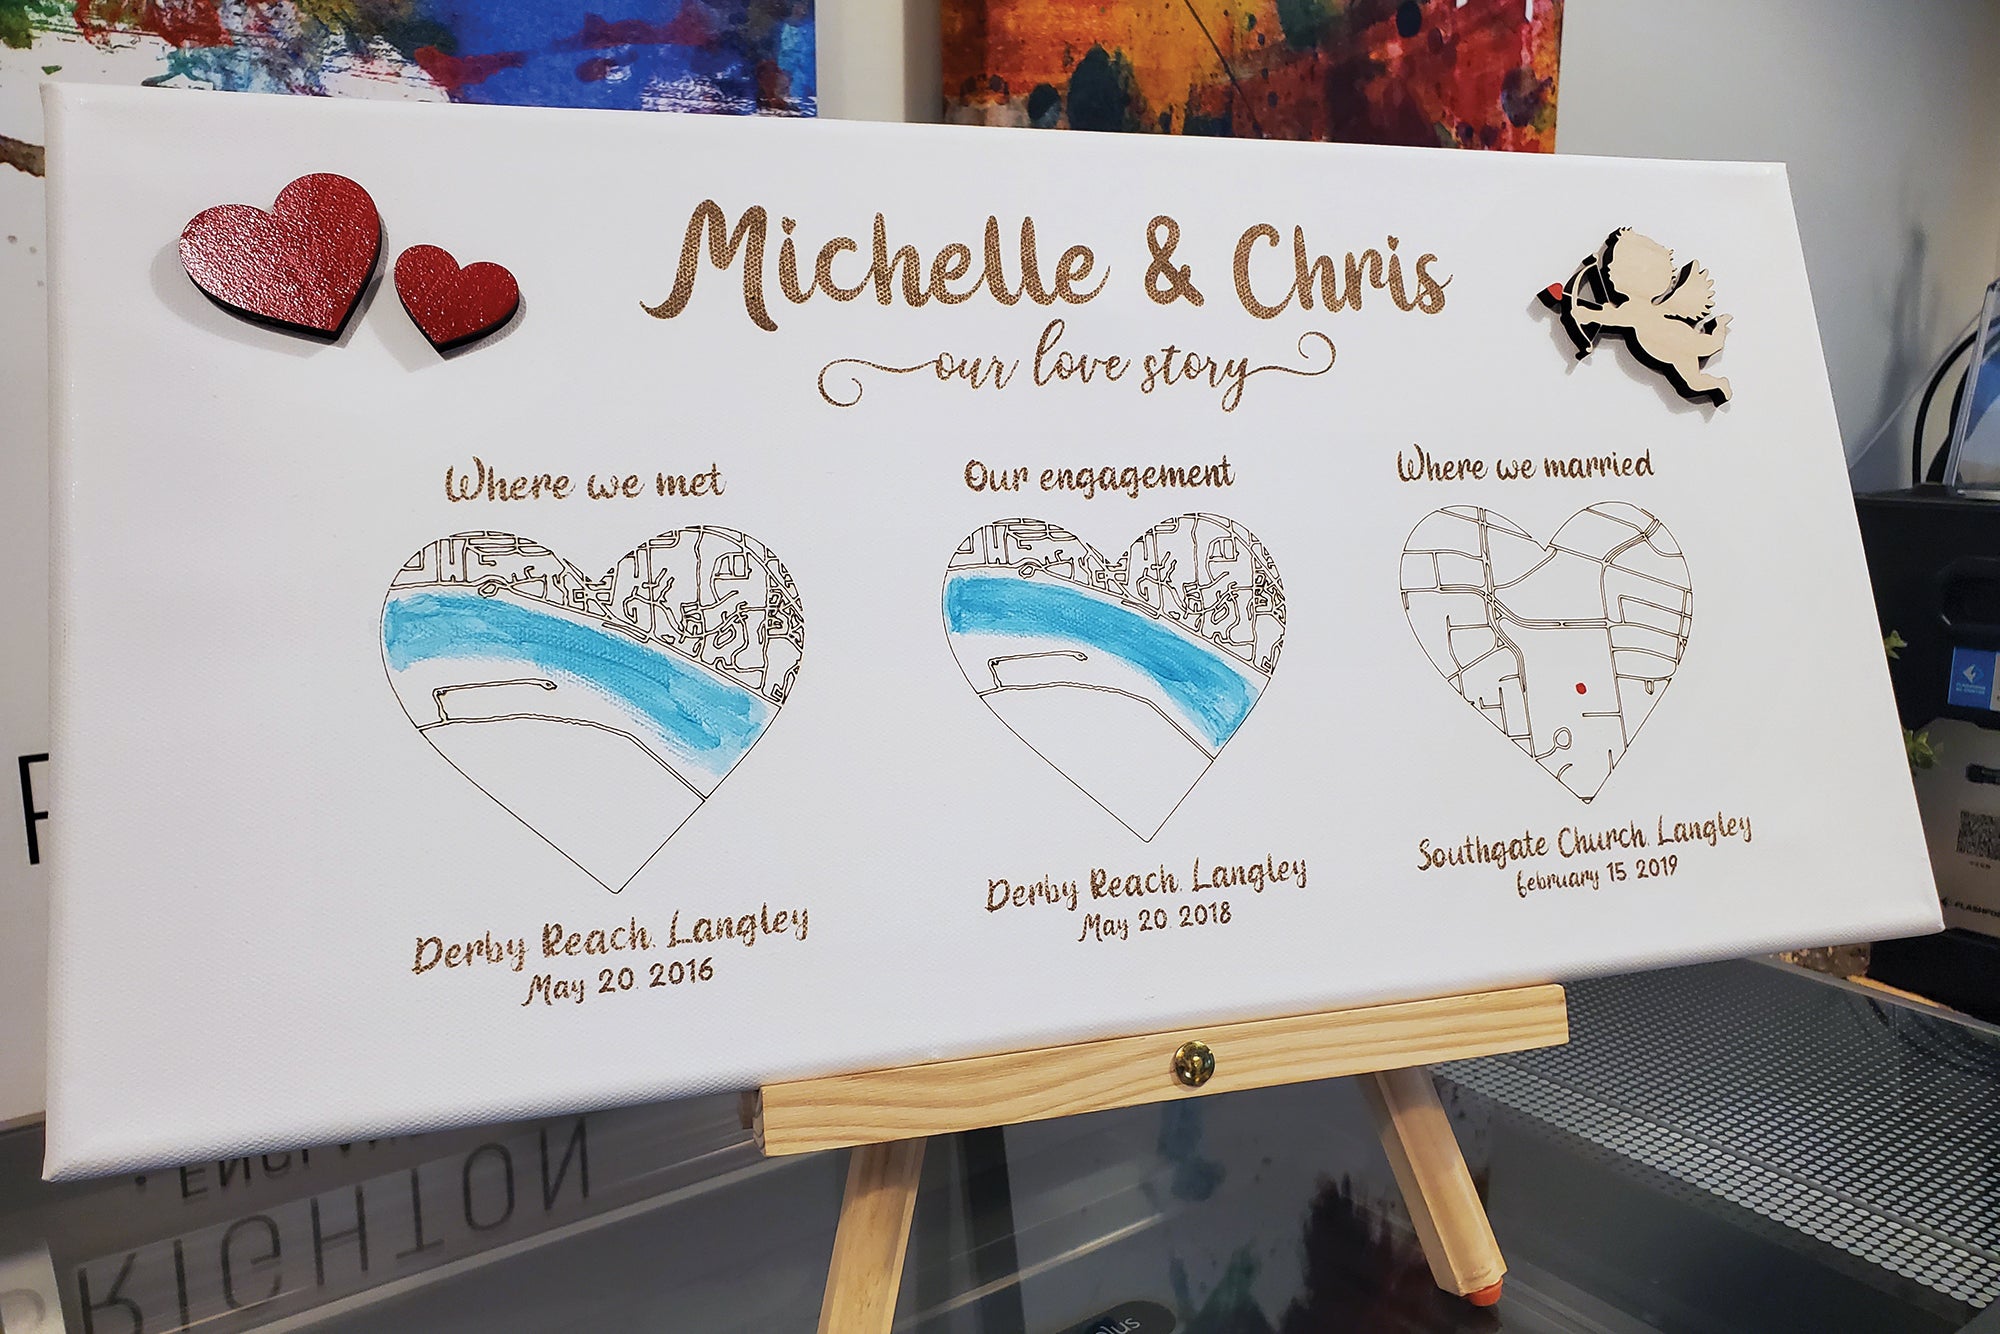 Michelle & Chris
our love story
Where we met
Our engagement
Where we married
Derby Reach, Langley
May 20, 2016
Derby Reach, Langley
May 20, 2018
Southgate Church, Langley
February 15, 2019